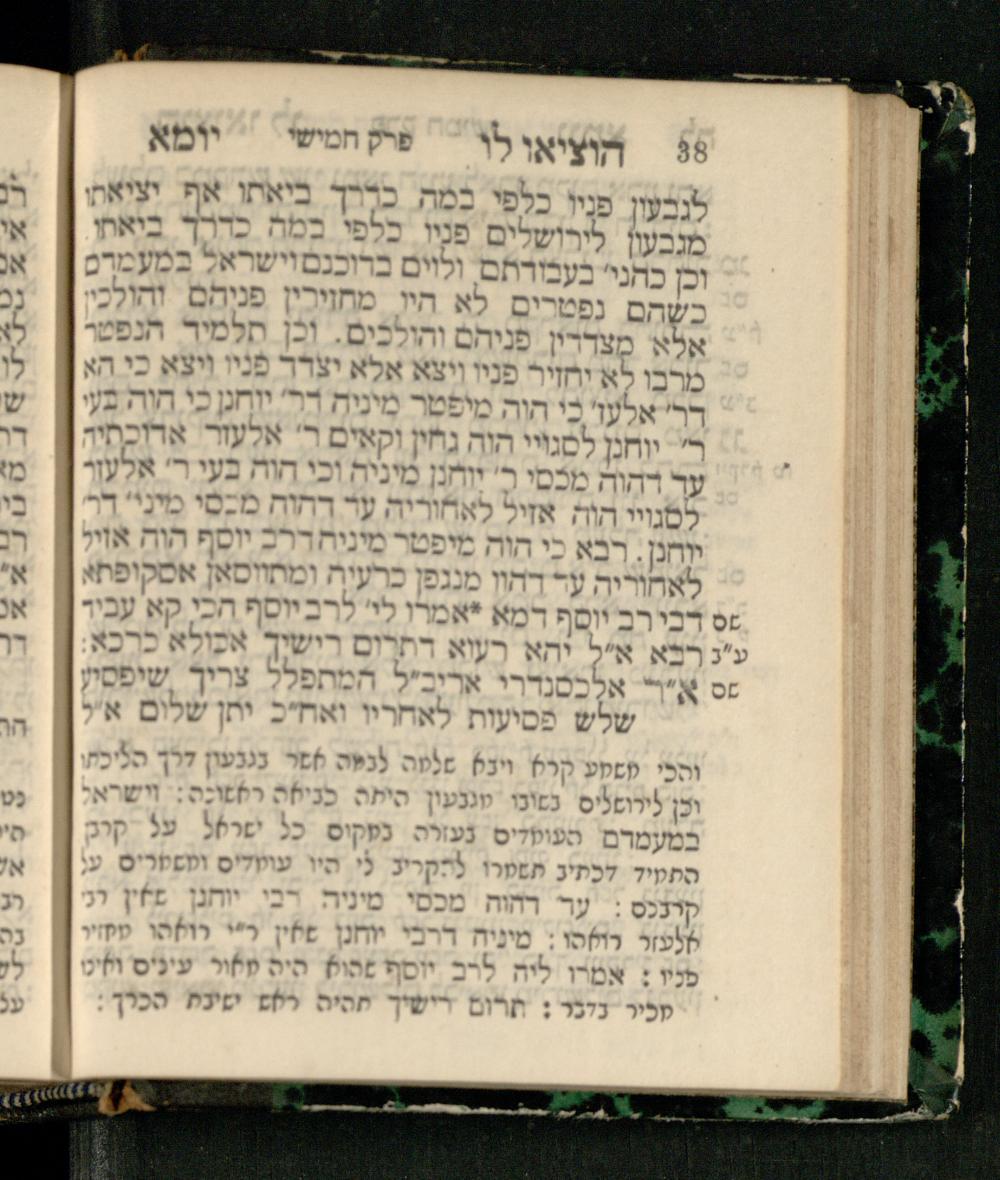 38 הוציאו לו פרק חמישי יומא
לגבעון פניו כלפי במה כדרך ביאתו אף יציאתו
מגבעון לירושלים פניו כלפי במה כדרך ביאתו.
וכן כהני׳ בעבודתם ולוים בדוכנם וישראל במעמדם
כשהם נפטרים לא היו מחזירין פניהם והולכין
אלא מצדדין פניהם והולכים. וכן תלמיד הנפטר
מרבו לא יחזיר פניו ויצא אלא יצדד פניו ויצא כי הא
דר׳ אלעז׳ כי הוה מיפטר מיניה דר׳ יוחנן כי הוה בעי
ר׳ יוחנן לסגויי הוה גחין וקאים ר׳ אלעזר אדוכתיה
עד דהוה מכסי ר׳ יוחנן מיניה וכי הוה בעי ר׳ אלעזר
לסגויי הוה אזיל לאחוריה עד דהוה מכסי מיני׳ דר׳
יוחנן. רבא כי הוה מיפטר מיניה דרב יוסף הוה אזיל
לאחוריה עד דהוו מנגפן כרעיה ומתווסאן אסקופתא
שם דבי רב יוסף דמא *אמרו לי׳ לרב יוסף הכי קא עביד
ע״ב רבא א״ל יהא רעוא דתרום רישיך אכולא כרכא:
שם א״ר אלכסנדרי אריב״ל המתפלל צריך שיפסיע
שלש פסיעות לאחריו ואח״כ יתן שלום א״ל
והכי משמע קרא ויבא שלמה לבמה אשר בגבעון דרך הליכתו
וכן לירושלים בשובו מגבעון היתה כביאה ראשונה: וישראל
במעמדם העומדים בעזרה במקום כל ישראל על קרבן
התמיד דכתיב תשמרו להקריב לי היו עומדים ומשמרים על
קרבנם: עד דהוה מכסי מיניה רבי יוחנן שאין רבי
אלעזר רואהו: מיניה דרבי יוחנן שאין ר״י רואהו מחזיר
פניו: אמרו ליה לרב יוסף שהוא היה מאור עינים ואינו
מכיר בדבר: תרום רישיך תהיה ראש ישיבת הכרך: